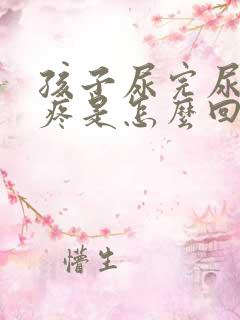 孩子尿完尿
疼是怎麼回
懵生